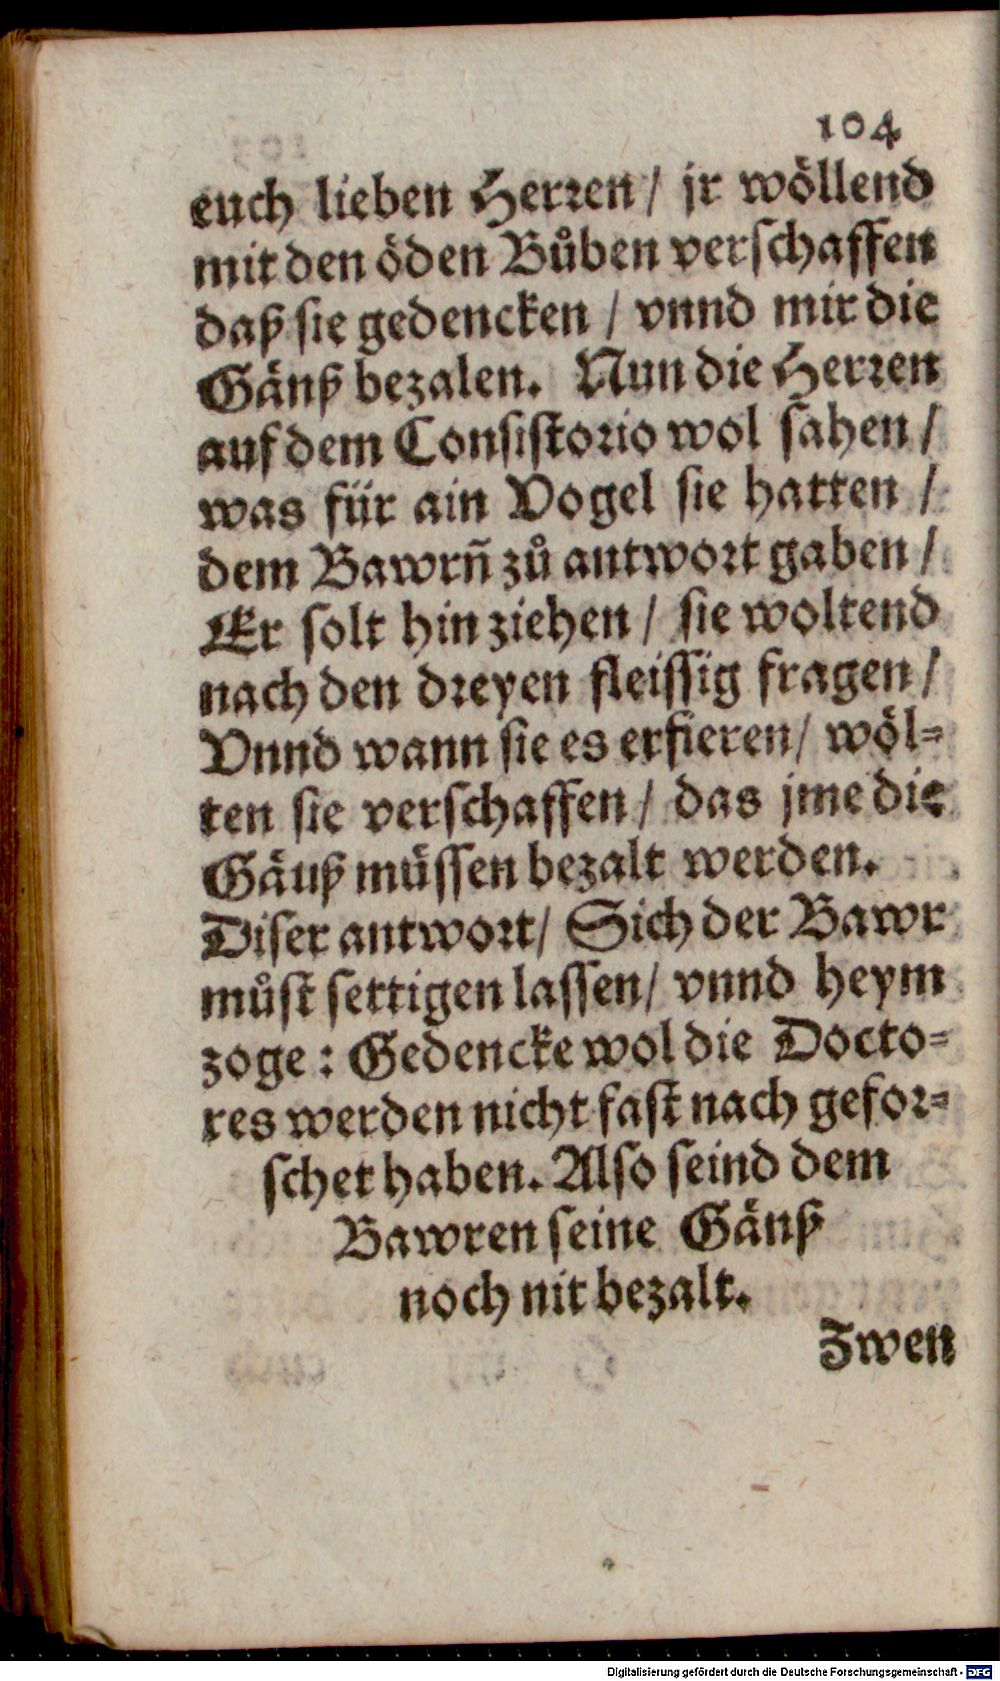 104
euch lieben Herren / jr wöllend
mit den öden Bůben verschaffen
daß sie gedencken / vnnd mir die
Gänß bezalen. Nun die Herren
auf dem Consistorio wol sahen /
was für ain Vogel sie hatten /
dem Bawrn̄ zů antwort gaben /
Er solt hin ziehen / sie woltend
nach den dreyen fleissig fragen /
Vnnd wann sie es erfieren / wöl-
ten sie verschaffen / das jme die
Gäuß müssen bezalt werden.
Diser antwort / Sich der Bawr
můst settigen lassen / vnnd heym
zoge : Gedencke wol die Docto-
res werden nicht fast nach gefor-
schet haben. Also seind dem
Bawren seine Gänß
noch nit bezalt.
Zwen
Digitalisierung gefördert durch die Deutsche Forschungsgemeinschaft - DFG